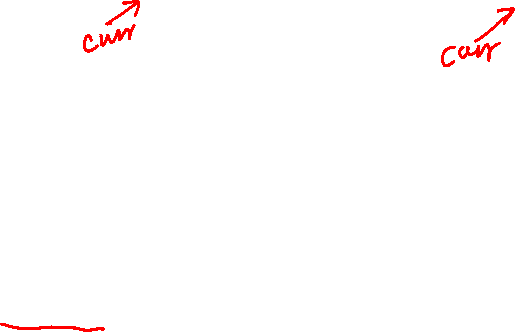 curr
curr